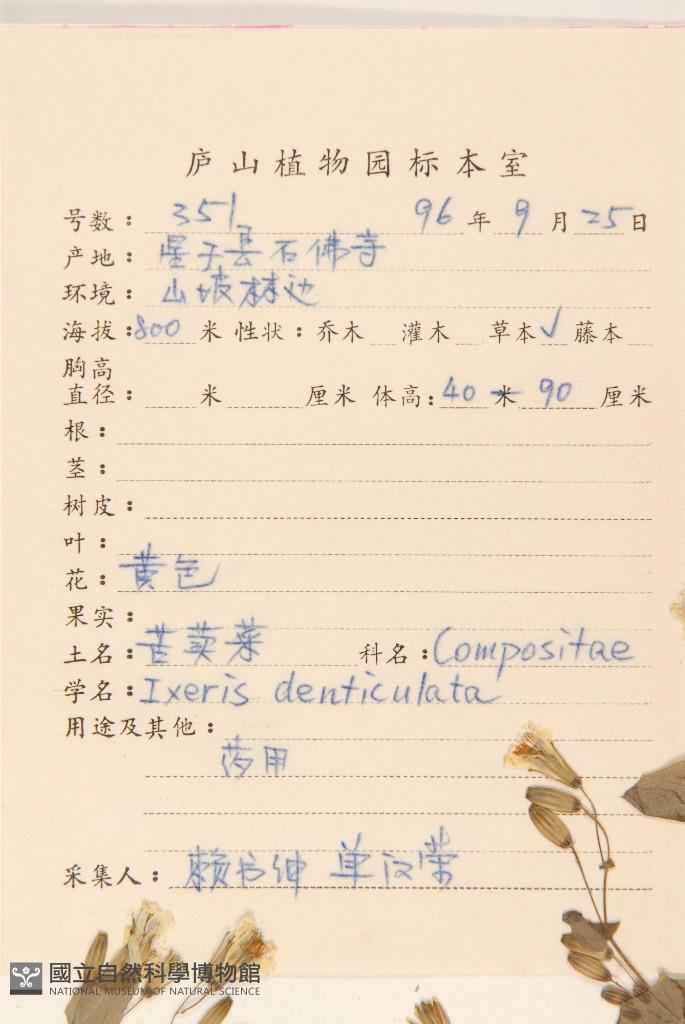 庐山植物园标本室
号数：351 96年9月25日
产地：星子县石佛寺
环境：山坡林边
海拔：800米 性状：乔木 灌木 草本√ 藤本
胸高
直径： 米 厘米 体高：40米90厘米
根：
茎：
树皮：
叶：
花：黄色
果实：
土名：苦荬菜 科名：Compositae
学名：Ixeris denticulata
用途及其他：
药用
采集人：赖书绅 单汉荣
國立自然科學博物館
NATIONAL MUSEUM OF NATURAL SCIENCE